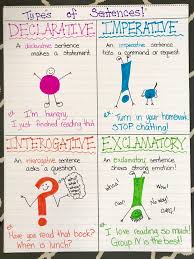 Types of Sentences!
DECLARATIVE
A declarative sentence
makes a statement.
I'm hungry.
I just finished reading that
IMPERATIVE
An imperative sentence
tells a command or request.
Turn in your homework
STOP chatting!
INTEROGATIVE
An interogative sentence
asks a question.
Have you read that book?
When is lunch?
EXCLAMATORY
An exclamatory sentence
shows strong emotion!
I love reading so much!
Group N is the best!